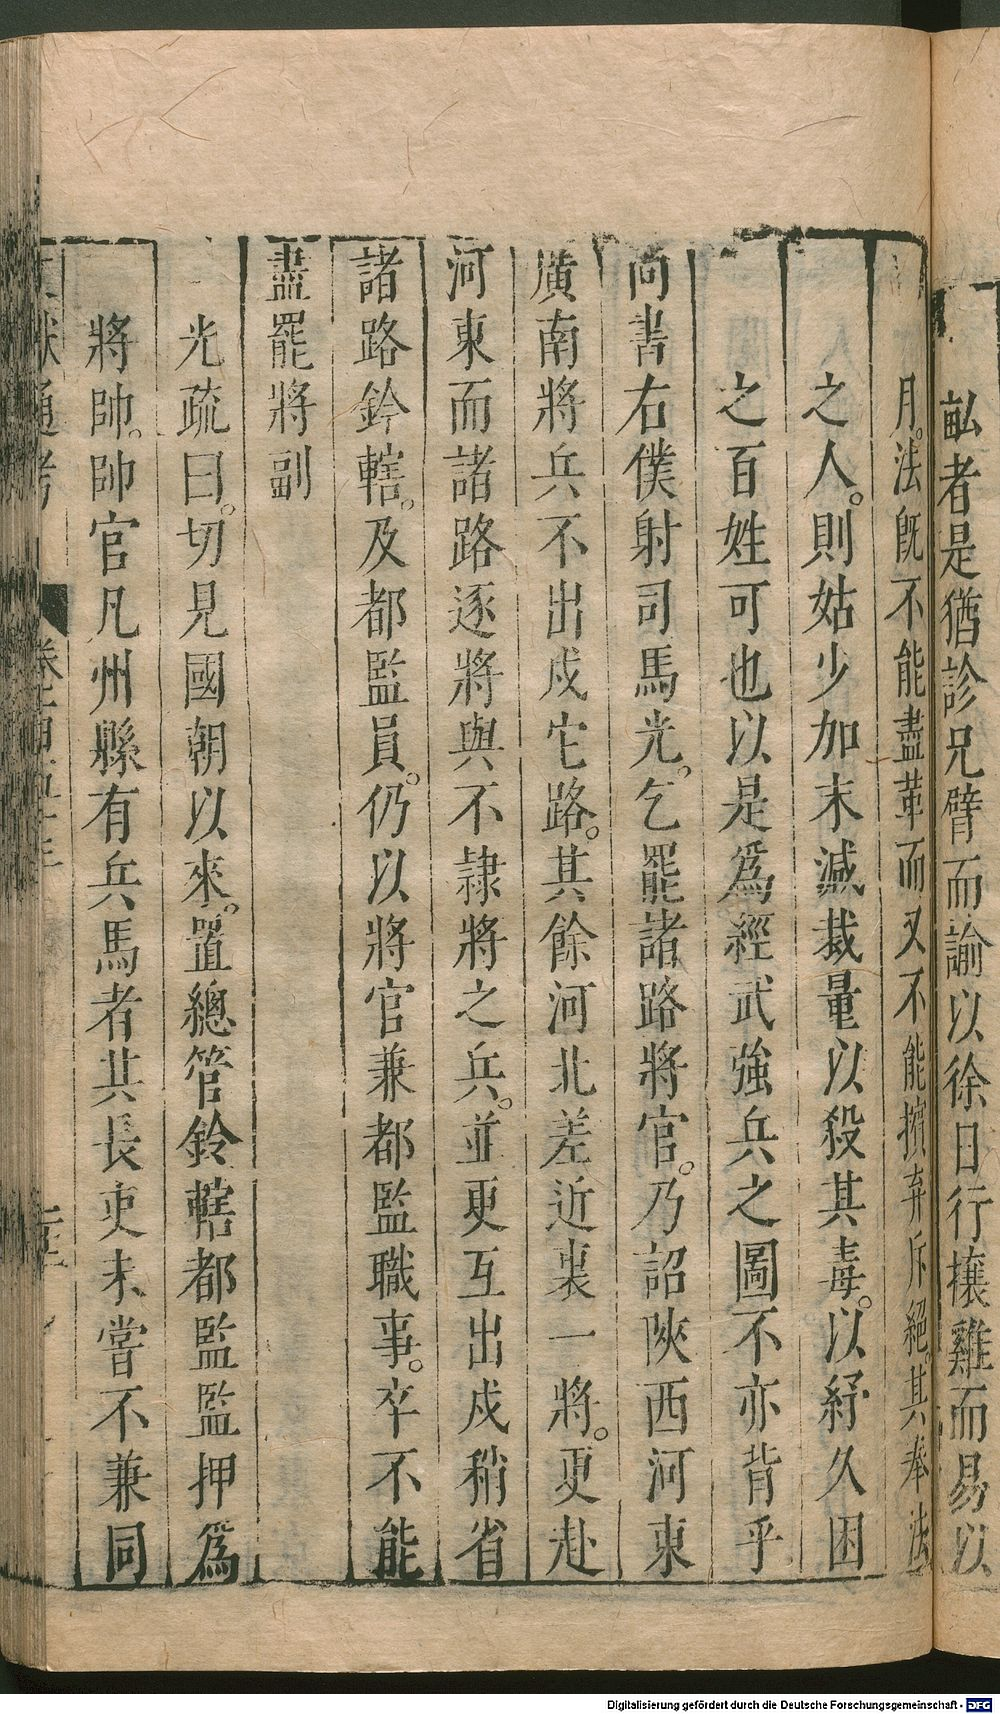 畆者是猶診兄臂而諭以徐日行攘雞而易以
月。法旣不能盡革而又不能擯弃斥絕。其奉法
之人。則姑少加末減裁量以殺其毒。以紓久困
之百姓可也以是爲經武強兵之圖不亦背乎
尚書右僕射司馬光。乞罷諸路將官。乃詔陜西河東
廣南將兵不出戍它路。其餘河北差近裏一將。更赴
河東而諸路逐將與不隷將之兵。並更互出戍稍省
諸路鈐轄。及都監員。仍以將官兼都監職事。卒不能
盡罷將副
光疏曰。切見國朝以來。置總管鈴轄都監監押爲
將帥。帥官凡州縣有兵馬者其長吏未嘗不兼同
獻通考
Digitalisierung gefördert durch die Deutsche Forschungsgemeinschaft - DFG